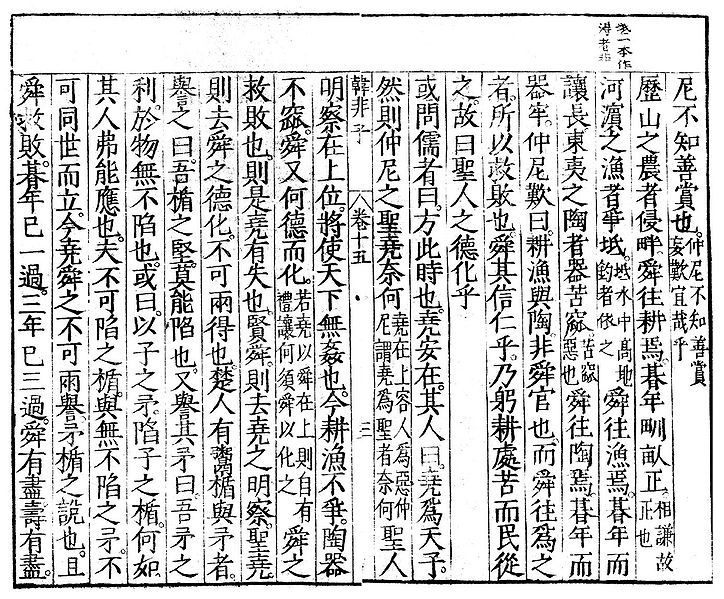 卷一本作
尼不知善賞也仲尼不知善賞妄歎宜哉乎
歷山之農者侵畔舜往耕焉朞年甽畝正相謙故正也
河濱之漁者爭坻坻水中高地釣者依之舜往漁焉朞年而
讓長東夷之陶者器苦窳苦窳惡也舜往陶焉朞年而
器牢仲尼歎曰耕漁與陶非舜官也而舜往爲之
者所以救敗也舜其信仁乎乃躬耕處苦而民從
之故曰聖人之德化乎
或問儒者曰方此時也堯安在其人曰堯爲天子
然則仲尼之聖堯奈何堯在上容人爲惡仲尼謂堯爲聖者奈何聖人
韓非子 卷十五 三
明察在上位將使天下無姦也今耕漁不爭陶器
不窳舜又何德而化若堯以舜在上則自有禮讓何須舜以化之舜之
救敗也則是堯有失也賢舜則去堯之明察聖堯
則去舜之德化不可兩得也楚人有鬻楯與矛者
譽之曰吾楯之堅莫能陷也又譽其矛曰吾矛之
利於物無不陷也或曰以子之矛陷子之楯何如
其人弗能應也夫不可陷之楯與無不陷之矛不
可同世而立今堯舜之不可兩譽矛楯之說也且
舜救敗朞年已一過三年已三過舜有盡壽有盡